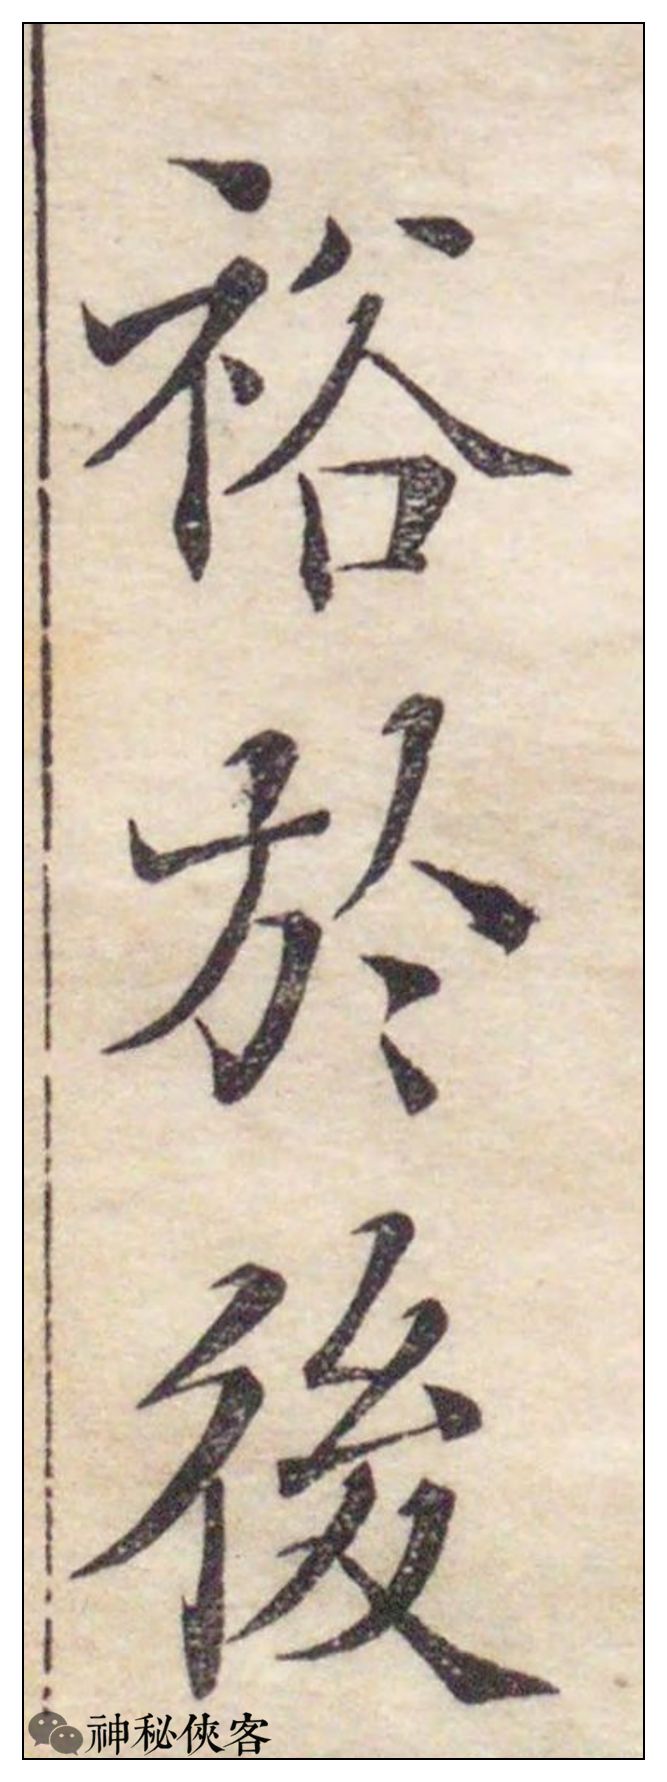 裕於後
神秘俠客